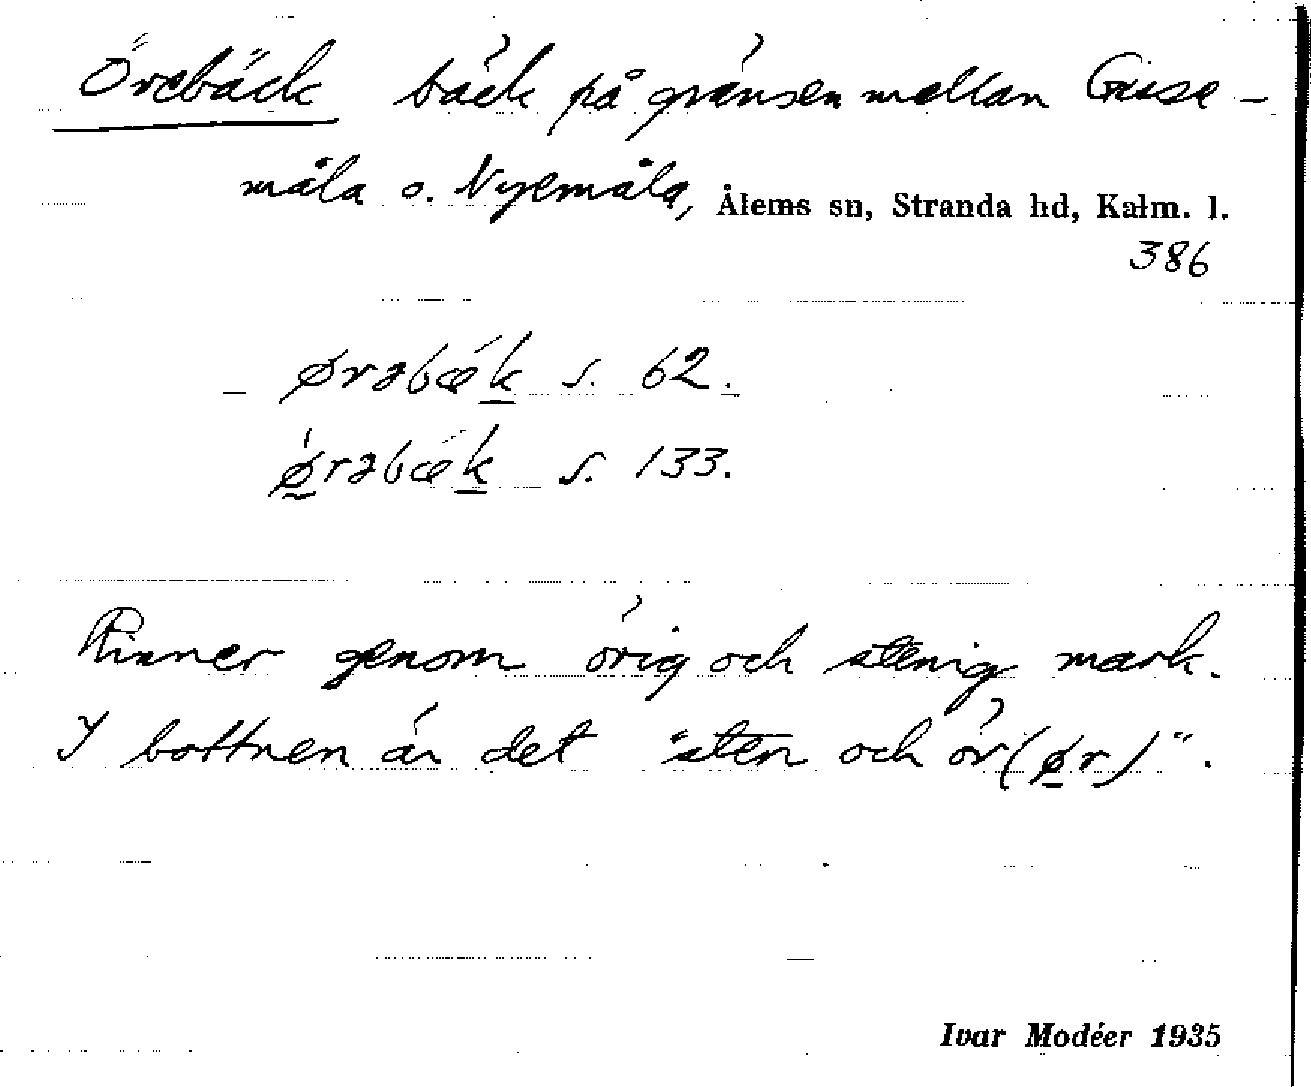 Örebäck bäck på gränsen mellan Gruse-
måla o. Nyemåla, Ålems sn, Stranda hd, Kalm. l.
386
ørəbæ´k s. 62.
ø̀rəbæ´k s. 133.
Rinner genom örig och stenig mark.
I bottnen är det "sten och ör (ør)".
Ivar Modéer 1935